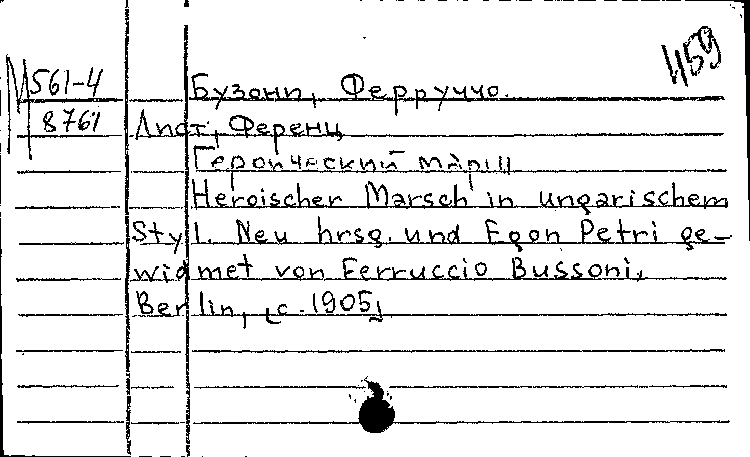 1159
М 561-4
8761
Бузони, Ферруччо.
Лист, Ференц
Героический марш
Heroischer Marsch in ungarischem
Styl. Neu hrsg. und Egon Petri ge-
widmet von Ferruccio Bussoni,
Berlin, [c. 1905]